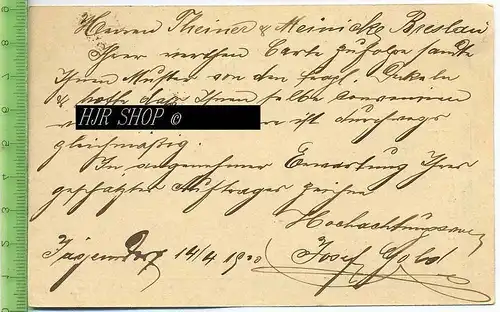 Herren Theiner & Meinicke Breslau
Ihrer werthen Carte zufolge sandte
Ihnen Muster von den fragl. Dekeln
& hoffe dass Ihnen selbe conveniren
HJR SHOP ©
ist durchwegs
gleichmässig.
In angenehmer Erwartung Ihres
geschätzten Auftrages zeichne
Hochachtungsvoll
Jägerndorf 14/4 1900 Josef Gold